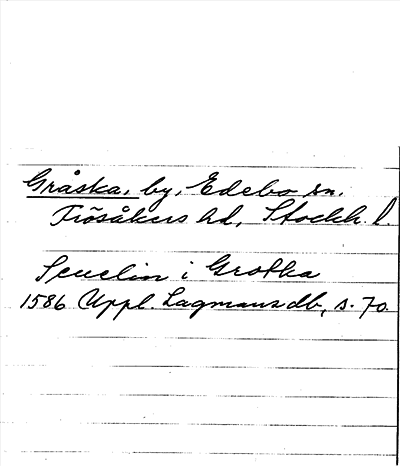 Gråska, by, Edebo sn.
Frösåkers hd, Stockh. l.
i Grotka
1586 Uppl. Lagmansdb, s. 70.